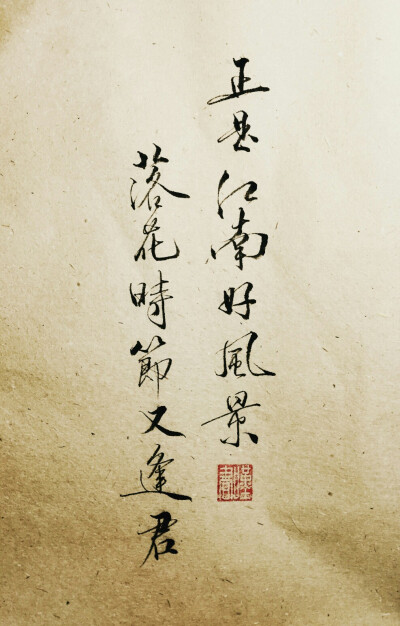 正是江南好風景
落花時節又逢君